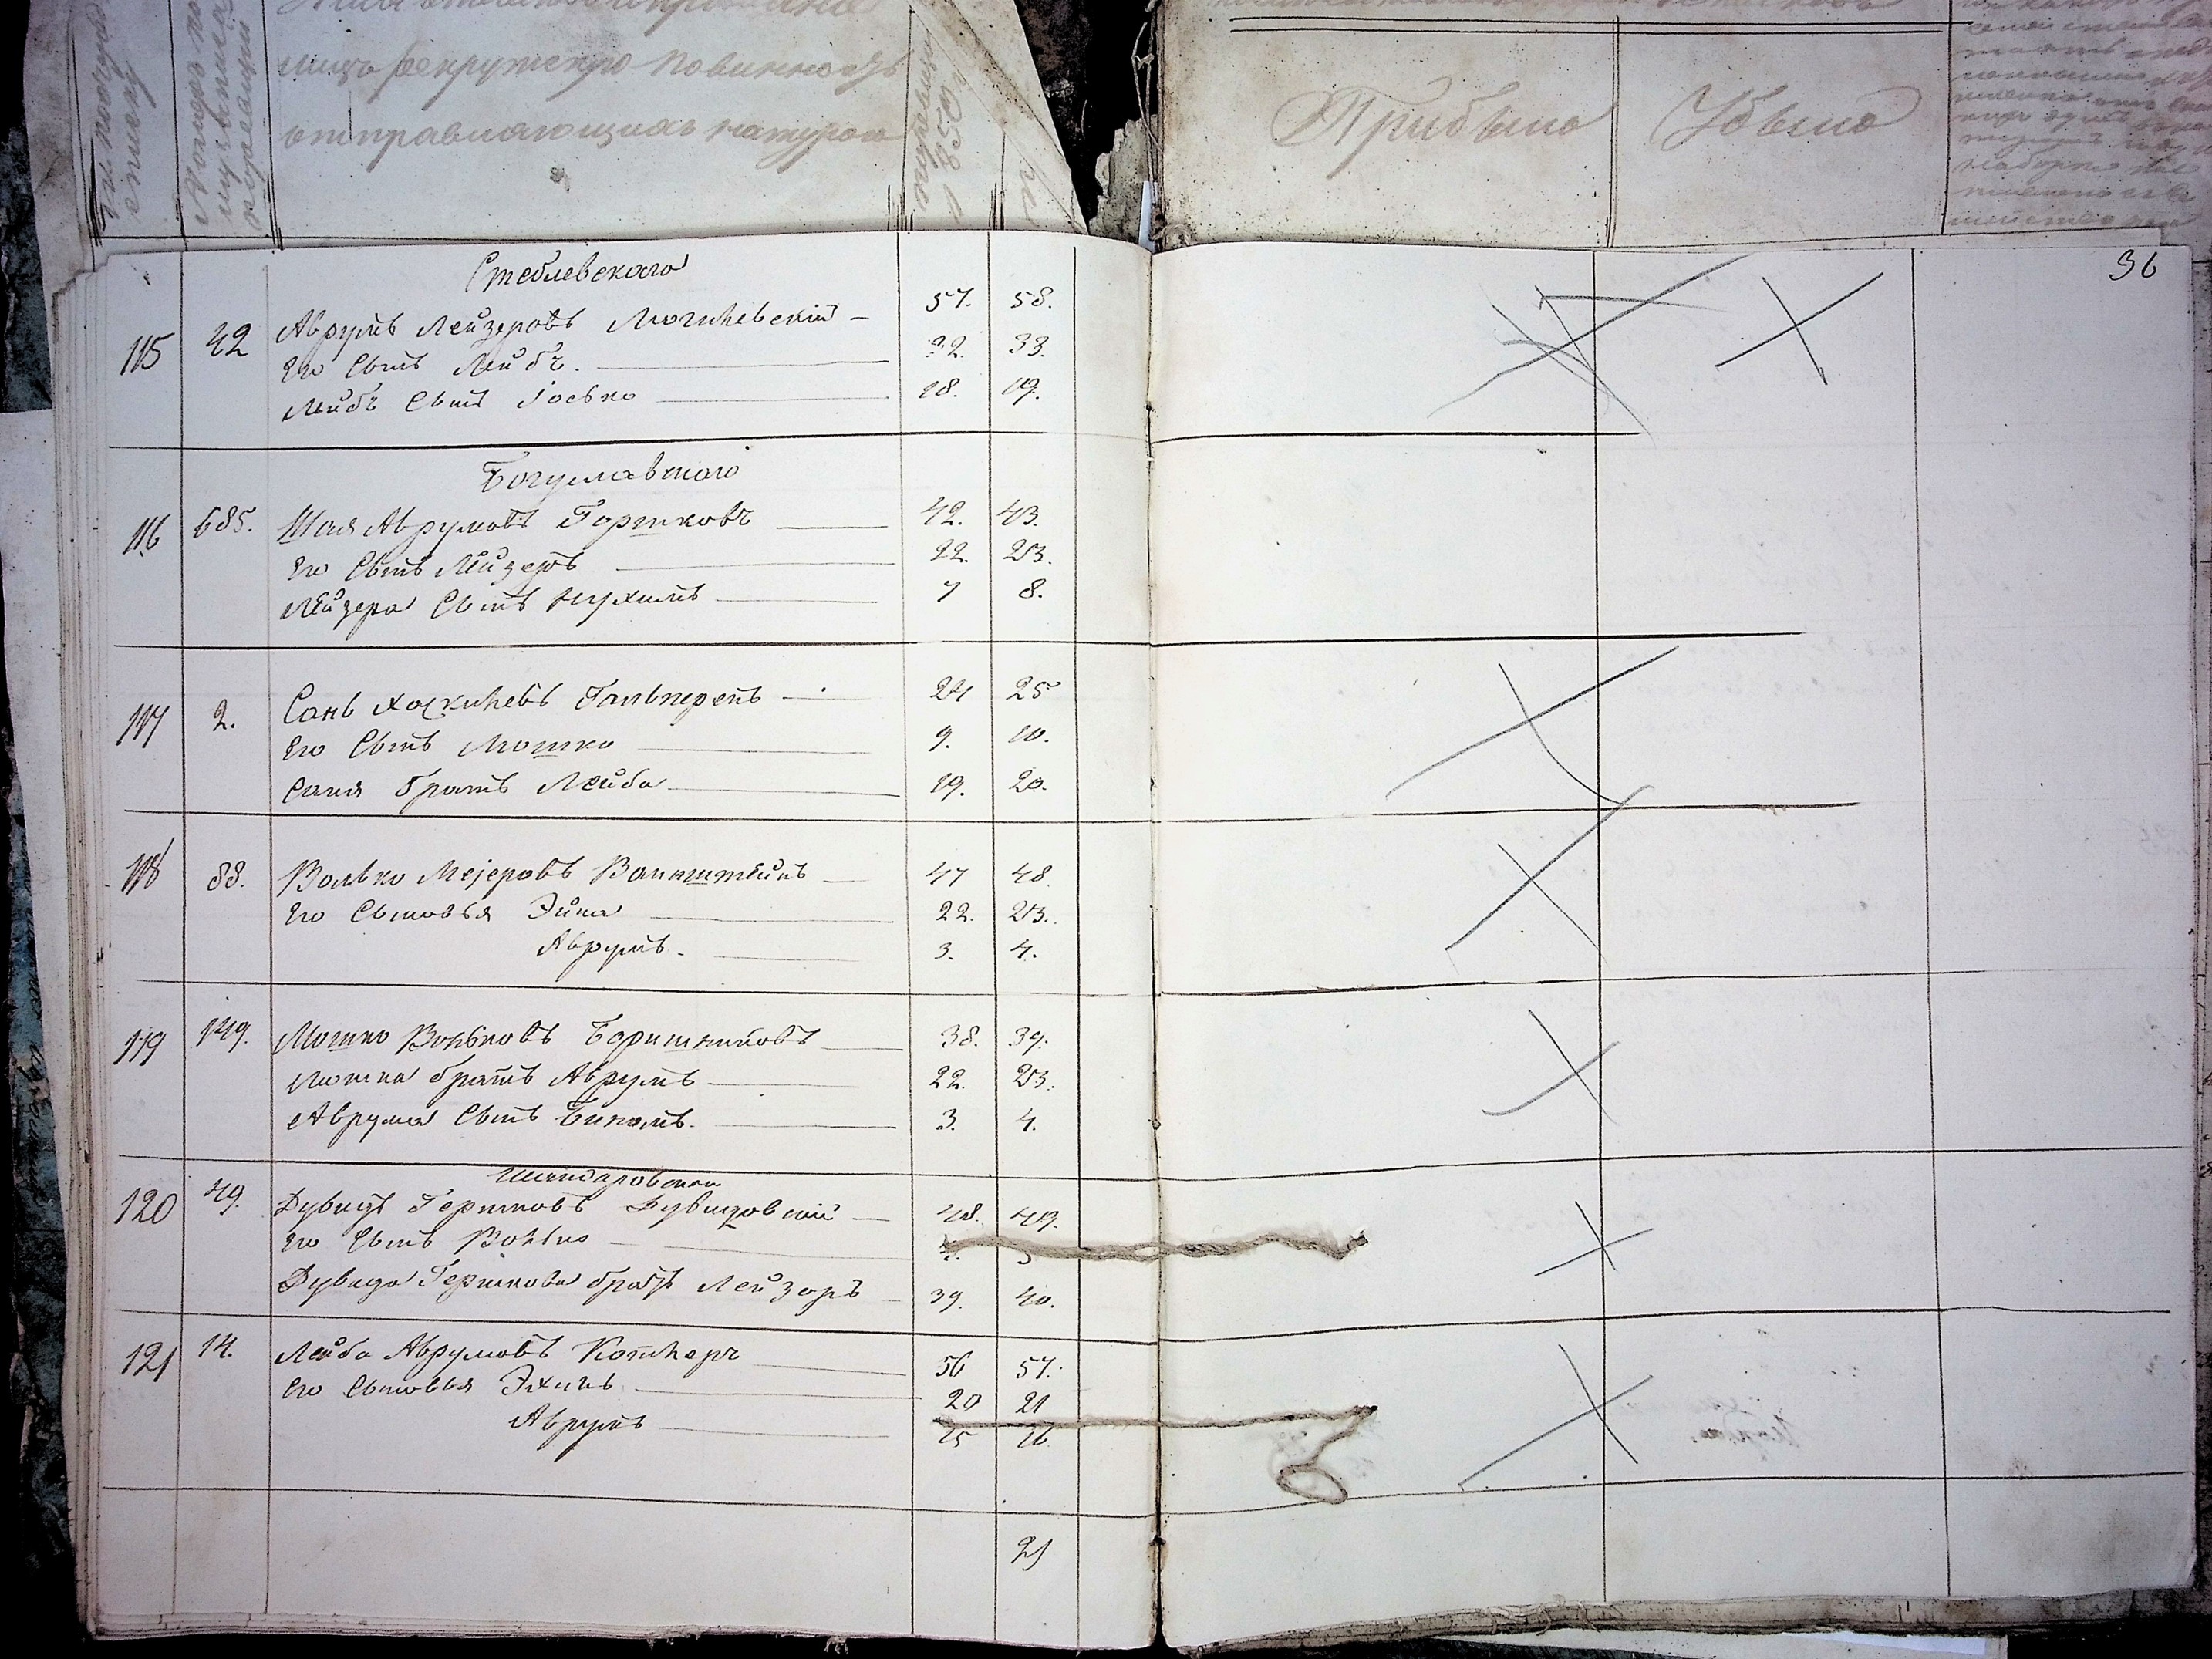 лицъ рекрутскую повинность
отправляющихъ натурою
1858
Прибыло
Убыло
36
Стеблевского
115 42 Аврумъ Лейзеровъ Могилевскій 57. 58.
Его Сынъ Лейбъ. 32. 33.
Лейбъ Сынъ Іосько 18. 19.
Богуславского
116 685. Шая Аврумовъ Горшковъ 42. 43.
Его Сынъ Лейзеръ 22. 23.
Лейзера Сынъ Нухимъ 7 8.
117 2. Сань Хаскилевъ Гальперенъ 24 25
Его Сынъ Мошко 9. 10.
Саня братъ Лейба 19. 20.
118 88. Волько Меjеровъ Ванштейнъ 47 48
Его Сыновья Эйна 22. 23.
Аврумъ. 3. 4.
119 149. Мошко Вольковъ Баришниковъ 38. 39.
Мошка братъ Аврумъ 22. 23.
Аврума Сынъ 3. 4.
120 49. Дувидъ Гершковъ Дувидовскій 48. 49.
Его Сынъ Волько
Дувида Гершкова братъ Лейзоръ 39. 40.
121 14. Лейба Аврумовъ Котляръ 56 57.
Его Сыновья Эхилъ 20 21
Аврумъ 15 16
21